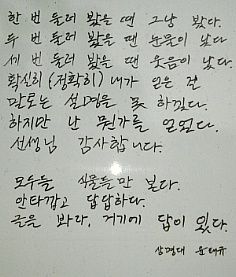 한 번 둘러 봤을 땐 그냥 봤다.
두 번 둘러 봤을 땐 눈물이 났다
세 번 둘러 봤을 땐 웃음이 났다.
확실히 (정확히) 내가 얻은 건
말로는 설명을 못 하겠다.
하지만 난 뭔가를 얻었다.
선생님 감사합니다.
모두들 식물들만 본다.
안타깝고 답답하다.
글을 봐라, 거기에 답이 있다.
상명대